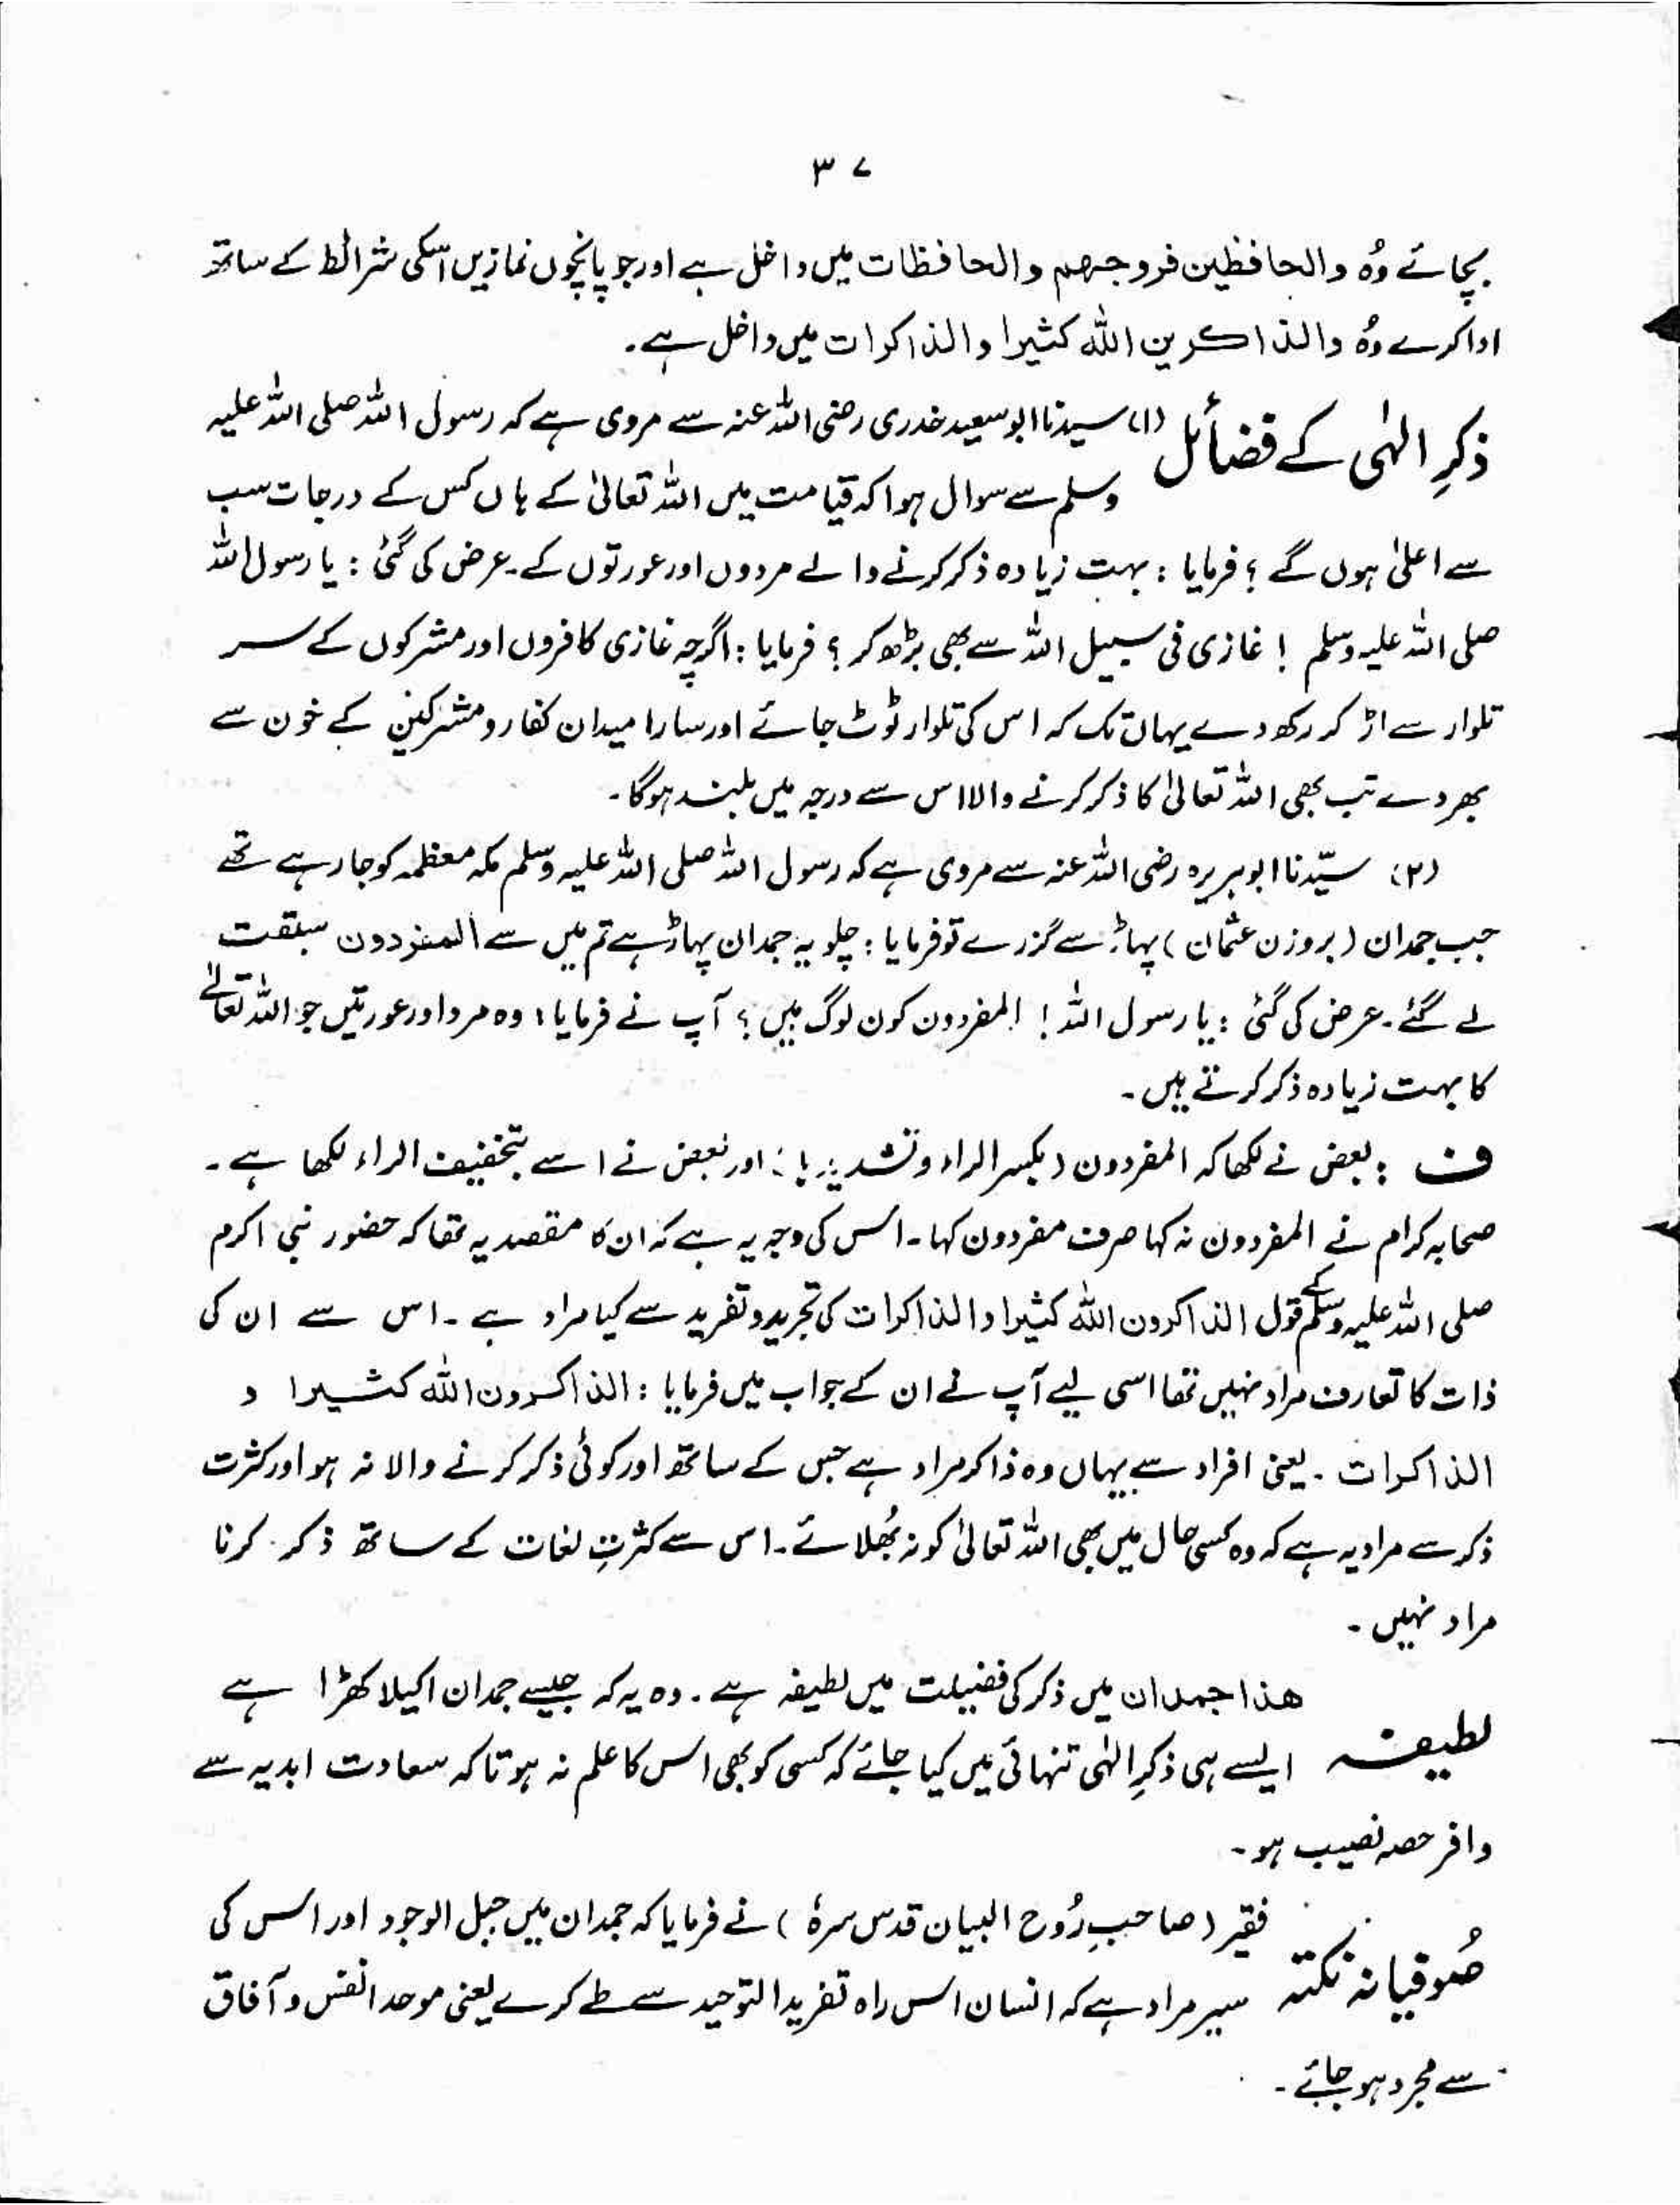 ۳۷
بچائے وُہ والحافظین فروجھم والحافظات میں داخل ہے اور جو پانچوں نمازیں اسکی شرائط کے ساتھ
ادا کرے وُہ والذاکرین اللہ کثیرا والذاکرات میں داخل ہے۔
ذکرِ الٰہی کے فضائل (۱) سیدنا ابوسعید خدری رضی اللہ عنہ سے مروی ہے کہ رسول اللہ صلی اللہ علیہ
وسلم سے سوال ہوا کہ قیامت میں اللہ تعالیٰ کے ہاں کس کے درجات سب
سے اعلیٰ ہوں گے ؟ فرمایا : بہت زیادہ ذکر کرنے والے مردوں اور عورتوں کے۔ عرض کی گئی : یا رسول اللہ
صلی اللہ علیہ وسلم ! غازی فی سبیل اللہ سے بھی بڑھ کر ؟ فرمایا : اگرچہ غازی کافروں اور مشرکوں کے سر
تلوار سے اڑا کر رکھ دے یہاں تک کہ اس کی تلوار ٹوٹ جائے اور سارا میدان کفار و مشرکین کے خون سے
بھر دے تب بھی اللہ تعالیٰ کا ذکر کرنے والا اس سے درجہ میں بلند ہوگا۔
(۲) سیّدنا ابوہریرہ رضی اللہ عنہ سے مروی ہے کہ رسول اللہ صلی اللہ علیہ وسلم مکہ معظمہ کو جا رہے تھے
جب جمدان (بروزن عثمان) پہاڑ سے گزرے تو فرمایا : چلو یہ جمدان پہاڑ ہے تم میں سے المفردون سبقت
لے گئے۔ عرض کی گئی : یا رسول اللہ ! المفردون کون لوگ ہیں ؟ آپ نے فرمایا : وہ مرد اور عورتیں جو اللہ تعالےٰ
کا بہت زیادہ ذکر کرتے ہیں۔
ف : بعض نے لکھا کہ المفردون (بکسر الراء و تشدیدہا) اور بعض نے اسے بتخفیف الراء لکھا ہے۔
صحابہ کرام نے المفردون نہ کہا صرف مفردون کہا۔ اس کی وجہ یہ ہے کہ ان کا مقصد یہ تھا کہ حضور نبی اکرم
صلی اللہ علیہ وسلم کے قول الذاکرون اللہ کثیرا والذاکرات کی تجرید و تفرید سے کیا مراد ہے۔ اس سے ان کی
ذات کا تعارف مراد نہیں تھا اسی لیے آپ نے ان کے جواب میں فرمایا : الذاکرون اللہ کثیرا و
الذاکرات۔ یعنی افراد سے یہاں وہ ذاکر مراد ہے جس کے ساتھ اور کوئی ذکر کرنے والا نہ ہو اور کثرت
ذکر سے مراد یہ ہے کہ وہ کسی حال میں بھی اللہ تعالیٰ کو نہ بُھلائے۔ اس سے کثرتِ لغات کے ساتھ ذکر کرنا
مراد نہیں۔
لطیفہ ھذا جمدان میں ذکر کی فضیلت میں لطیفہ ہے۔ وہ یہ کہ جیسے جمدان اکیلا کھڑا ہے
ایسے ہی ذکرِ الٰہی تنہائی میں کیا جائے کہ کسی کو بھی اس کا علم نہ ہو تاکہ سعادت ابدیہ سے
وافر حصہ نصیب ہو۔
صُوفیانہ نکتہ فقیر (صاحبِ رُوح البیان قدس سرہٗ) نے فرمایا کہ جمدان میں جبل الوجود اور اس کی
سیر مراد ہے کہ انسان اس راہ تفرید التوحید سے طے کرے یعنی موحد انفس و آفاق
سے مجرد ہو جائے۔